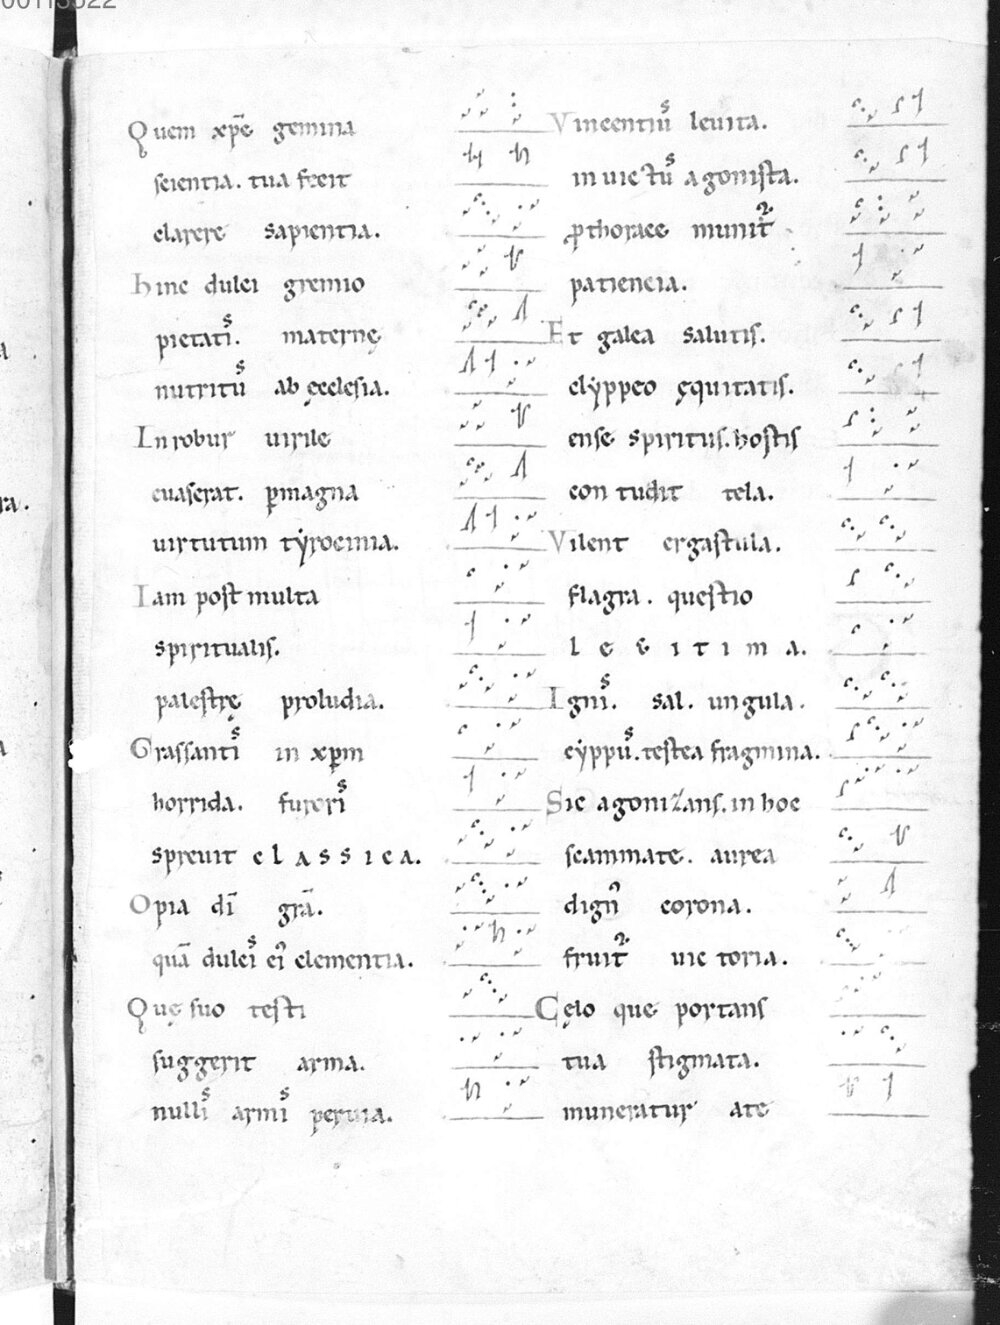 Quem xp̄e gemina
scientia. tua fecit
clarere sapientia.
Hinc dulci gremio
pietatiˢ. maternę
nutrituˢ ab ęcclesia.
In robur uirile
euaserat. ꝑ magna
uirtutum tẏrocinia.
Iam post multa
spiritualis.
palestrę proludia.
Grassantiˢ in xp̄m
horrida. furoriˢ
spreuit classica.
O pia dī grā.
quā dulciˢ ei᾽ clementia.
Quę suo testi
suggerit arma.
nulliˢ armiˢ peruia.
Vincentiuˢ leuita.
inuictuˢ agonista.
ꝓ thorace munit᷑
patiencia.
Et galea salutis.
clẏppeo ęquitatis.
ense spiritus. hostis
contudit tela.
Vilent ergastula.
flagra. questio
legitima.
Igniˢ. sal. ungula.
cẏppuˢ. testea fragmina.
Sic agonizans. in hoc
scammate. aurea
dign᾽ corona.
fruit᷑ uictoria.
Cęlo que portans
tua stigmata.
muneratur a te